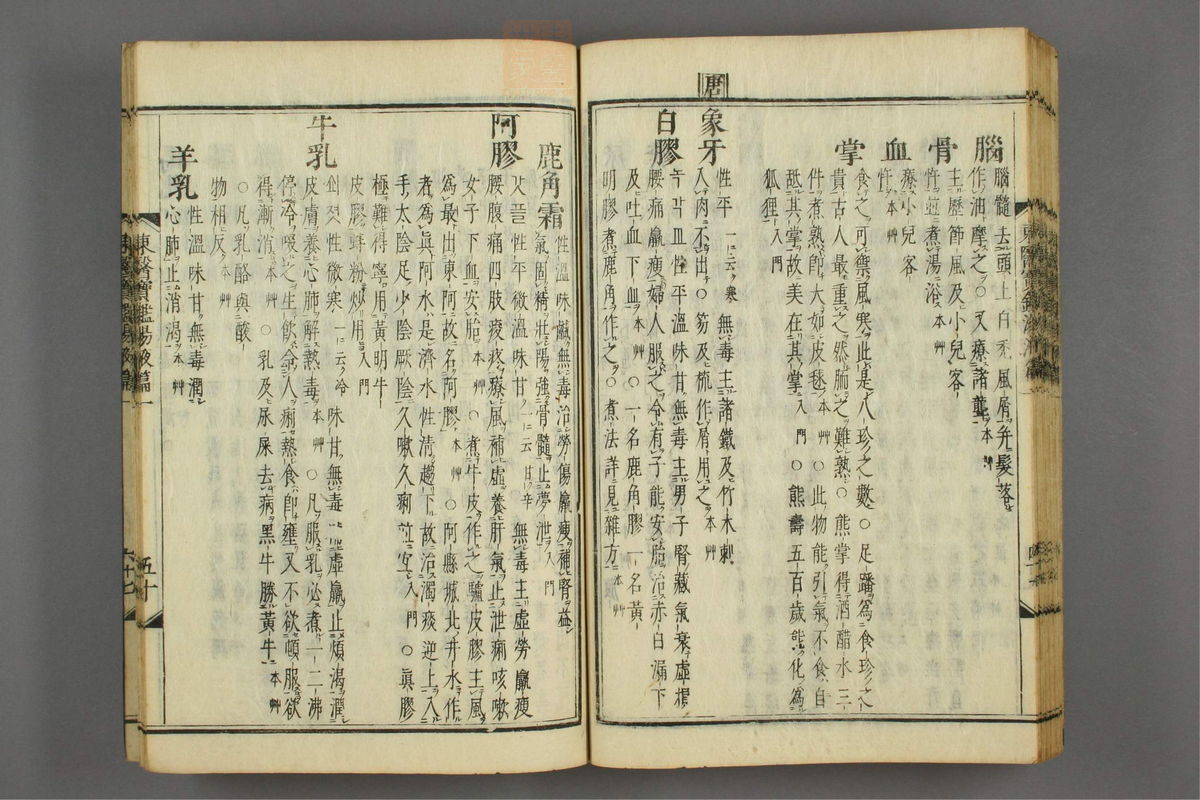 腦 腦髓去頭上白禿風屑幷髮落
作油摩之○又療諸聾 本艸
骨 主歷節風及小兒客
忤並煮湯浴 本艸
血 療小兒客
忤 本艸
掌 食之可禦風寒此是八珍之數○足蹯爲食珍之
貴古人最重之然胹之難熟○熊掌得酒醋水三
件煮熟卽大如皮毬 本艸 ○此物能引氣不食自
舐其掌故美在其掌 入門 ○熊壽五百歲能化爲
狐狸 入門
唐
象牙 性平 一云寒 無毒主諸鐵及竹木刺
入肉不出○笏及梳作屑用之 本艸
白膠 性平溫味甘無毒主男子腎藏氣衰虛損
腰痛羸瘦婦人服之令有子能安胎治赤白漏下
及吐血下血 本艸 ○一名鹿角膠一名黃
明膠煮鹿角作之○煮法詳見雜方 本艸
鹿角霜 性溫味鹹無毒治勞傷羸瘦補腎益
氣固精壯陽強骨髓止夢泄 入門
阿膠 性平微溫味甘 一云甘辛 無毒主虛勞羸瘦
腰腹痛四肢痠疼療風補虛養肝氣止泄痢咳嗽
女子下血安胎 本艸 ○煮牛皮作之驢皮膠主風
爲最出東阿故名阿膠 本艸 ○阿縣城北井水作
者爲眞阿水是濟水性清趨下故治濁痰逆上入
手太陰足少陰厥陰久嗽久痢並宜 入門 ○眞膠
極難得寧用黃明牛
皮膠粉炒用 入門
牛乳 性微寒 一云冷 味甘無毒 虛羸止煩渴潤
皮膚養心肺解熱毒 本艸 ○凡服乳必煮一二沸
停冷啜之生飮令人痢熱食卽壅又不欲頓服欲
得漸消 本艸 ○乳及尿屎去病黑牛勝黃牛 本艸
○凡乳酪與酸
物相反 本艸
羊乳 性溫味甘無毒潤
心肺止消渴 本艸
東醫寶鑑湯液篇一
五十